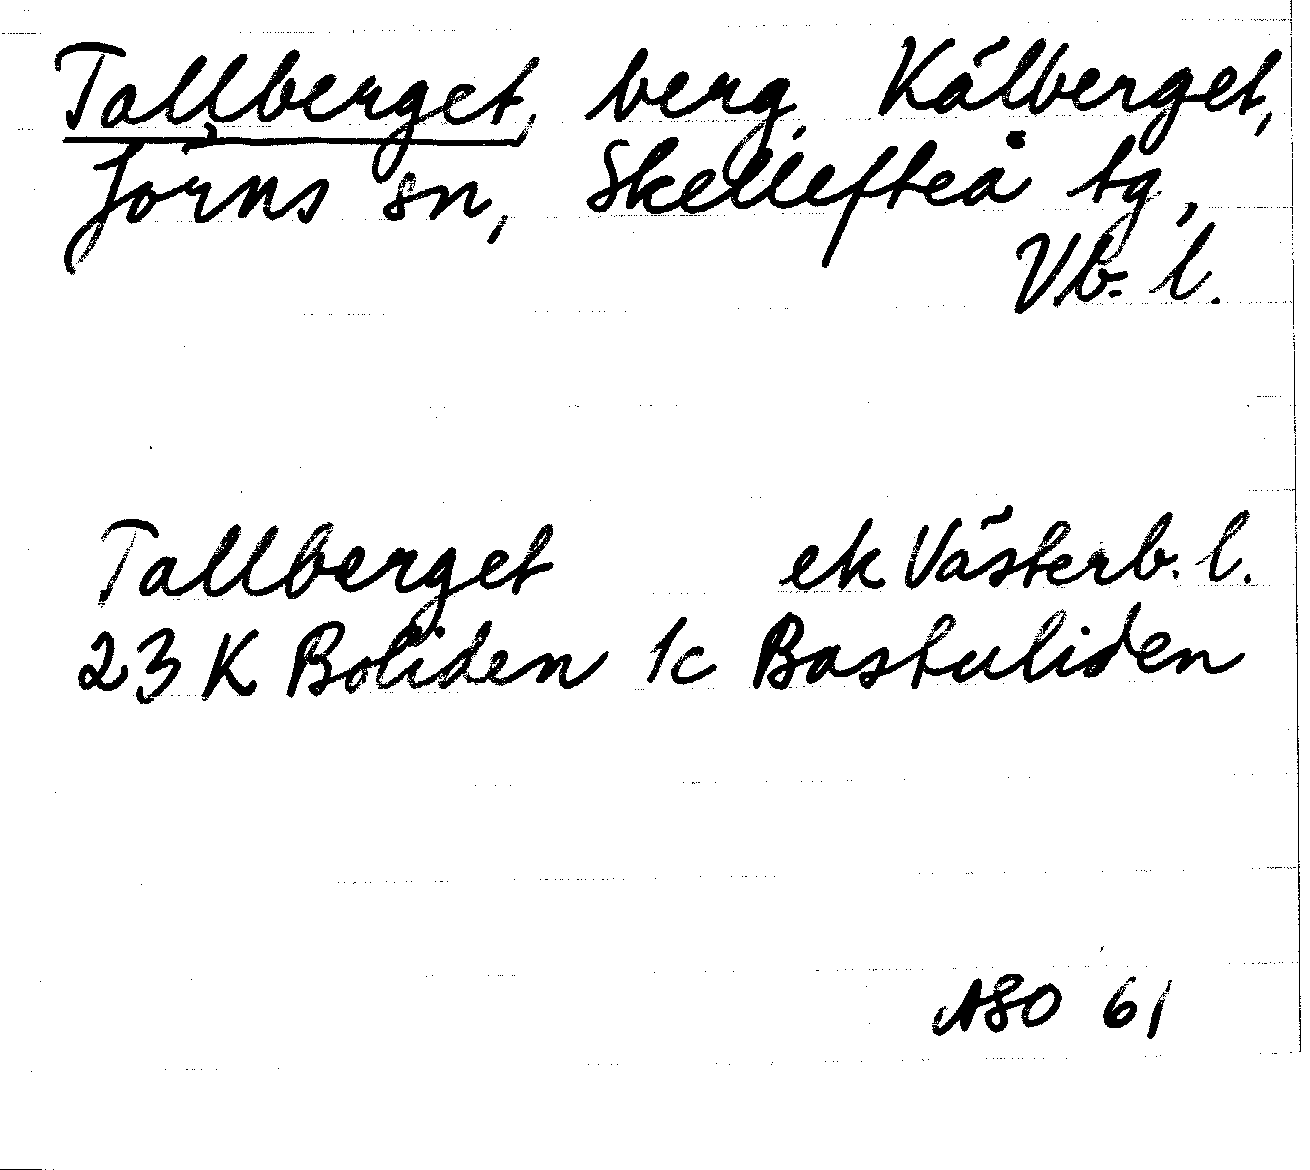 Tallberget, berg, Kälberget,
Jörns sn, Skellefteå tg,
Vb. l.
Tallberget ek Västerb. l.
23 K Boliden 1c Bastuliden
ASO 61